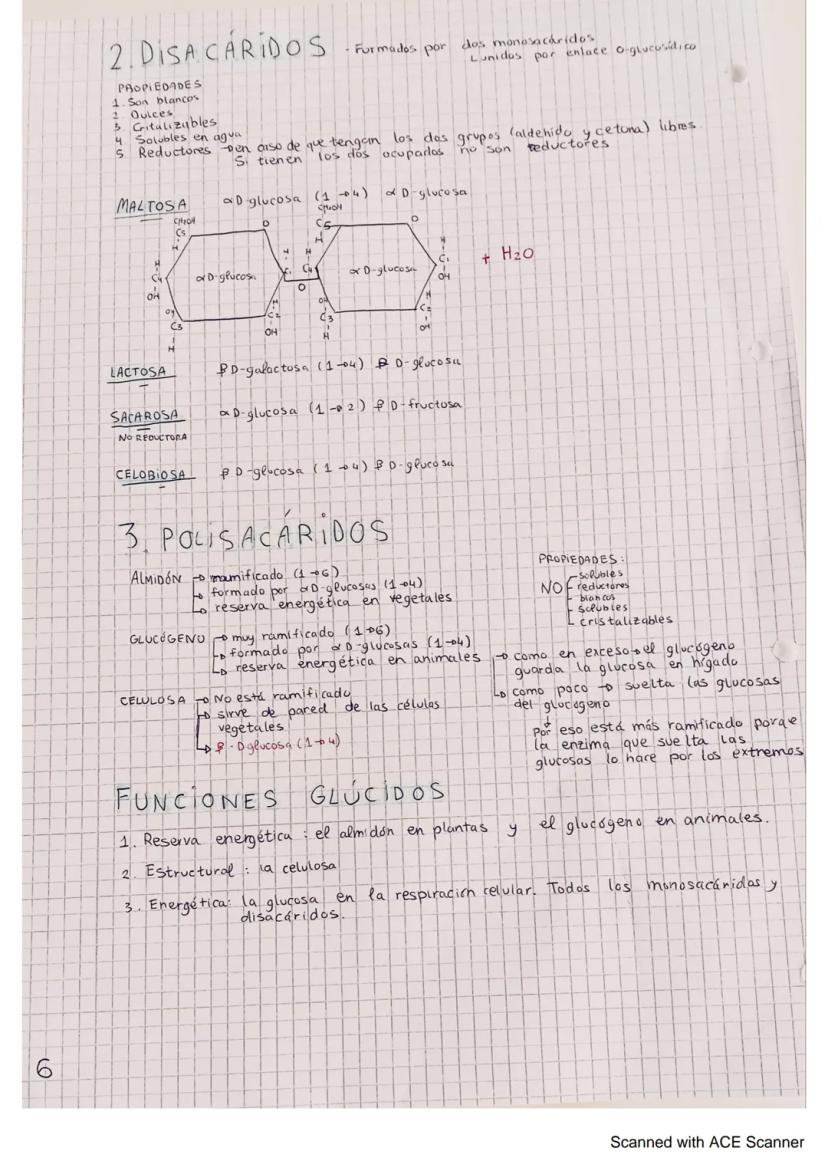 2. DISACÁRIDOS - Formados por dos monosacáridos
Lunidos por enlace O-glucosídico
PROPIEDADES
1. Son blancos
2 Dulces
3. Critalizables
4 Solubles en agua
5 Reductores → en caso de que tengan los dos grupos (aldehido y cetona) libres.
Si tienen los dos ocupados no son reductores
MALTOSA α D-glucosa (1→4) α D-glucosa
CH2OH CH2OH
C5 O C5 O
H H H H H
C4 α D-glucosa C1 C4 α D-glucosa C1 + H2O
OH O OH
OH H OH H
C3 C2 C3 C2
H OH H OH
LACTOSA β D-galactosa (1→4) β D-glucosa
SACAROSA α D-glucosa (1→2) β D-fructosa
NO REDUCTORA
CELOBIOSA β D-glucosa (1→4) β D-glucosa
3. POLISACÁRIDOS
ALMIDÓN → ramificado (1→6)
→ formado por α D-glucosas (1→4)
→ reserva energética en vegetales
PROPIEDADES:
NO
solubles
reductores
blancos
solubles
cristalizables
GLUCÓGENO → muy ramificado (1→6)
→ formado por α D-glucosas (1→4)
→ reserva energética en animales
→ como en exceso → el glucógeno
guarda la glucosa en hígado
→ como poco → suelta las glucosas
del glucógeno
Por eso está más ramificado porque
la enzima que suelta las
glucosas lo hace por los extremos
CELULOSA → No está ramificado
→ sirve de pared de las células
vegetales
→ β-D glucosa (1→4)
FUNCIONES GLÚCIDOS
1. Reserva energética: el almidón en plantas y el glucógeno en animales.
2. Estructural: la celulosa
3. Energética: la glucosa en la respiración celular. Todos los monosacáridos y
disacáridos.
6
Scanned with ACE Scanner